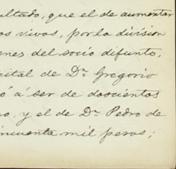 ultado, que el de aumentar
os vivos, por la division
enes del socio difunto,
pital de Dn. Gregorio
ó a ser de doscientos
o, y el de Dn. Pedro de
incuenta mil pesos;